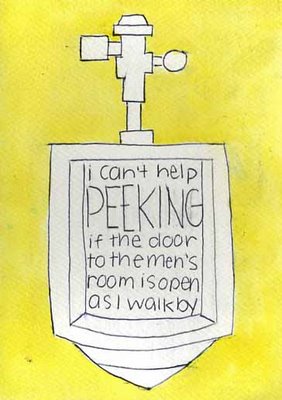 i can't help
PEEKING
if the door
to the men's
room is open
as I walk by